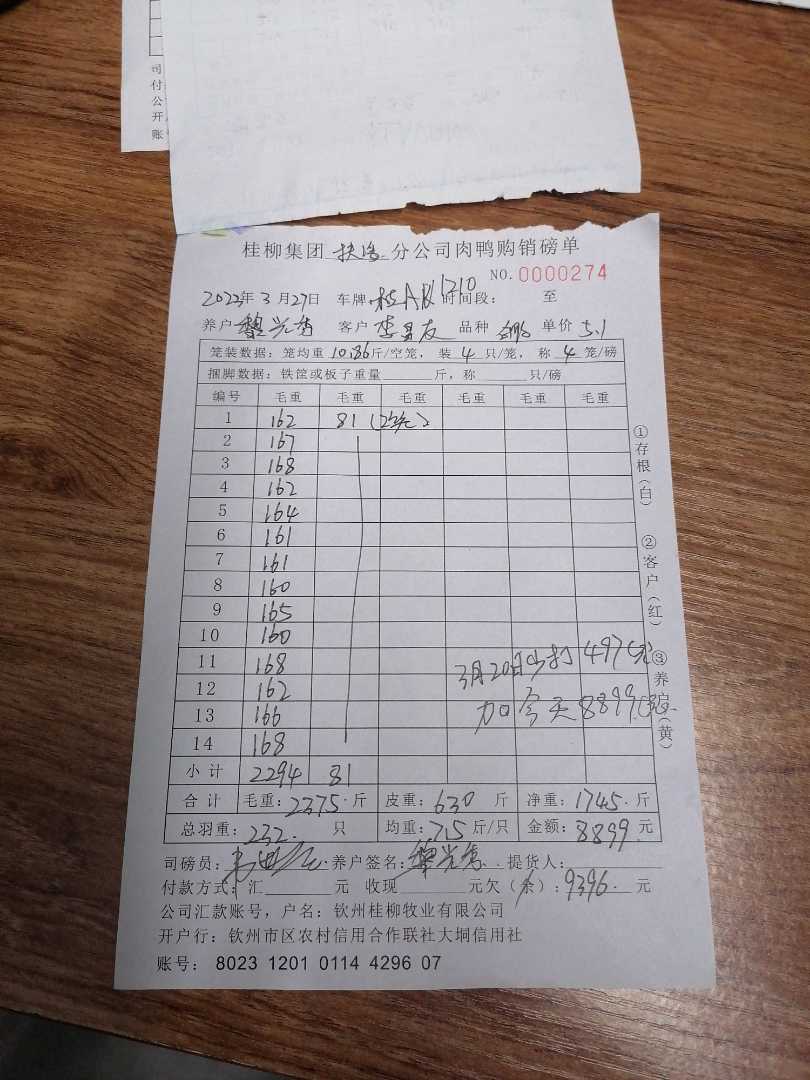 司
付
公
开
账
桂柳集团 扶 分公司肉鸭购销磅单
NO. 0000274
2022年3月27日 车牌 桂A 1210 时间段: 至
养户 黎光 客户 李 友 品种 单价 5.1
笼装数据:笼均重 10.86斤/空笼,装 4 只/笼,称 4 笼/磅
捆脚数据:铁筐或板子重量 斤,称 只/磅
编号 毛重 毛重 毛重 毛重 毛重 毛重
1 162 81
2 167
3 168
4 162
5 164
6 161
7 161
8 160
9 165
10 160
11 168
12 162
13 166
14 168
3月20日少打497元
加今天8899元
小计 2294 81
合计 毛重:2375.斤 皮重:630 斤 净重:1745.斤
总羽重:232. 只 均重:7.5斤/只 金额:8899.元
司磅员: 养户签名:黎光 提货人:
付款方式:汇 元 收现 元欠(余):9396.元
公司汇款账号,户名:钦州桂柳牧业有限公司
开户行:钦州市区农村信用合作联社大垌信用社
账号: 8023 1201 0114 4296 07
①存根(白)
②客户(红)
③养户(黄)